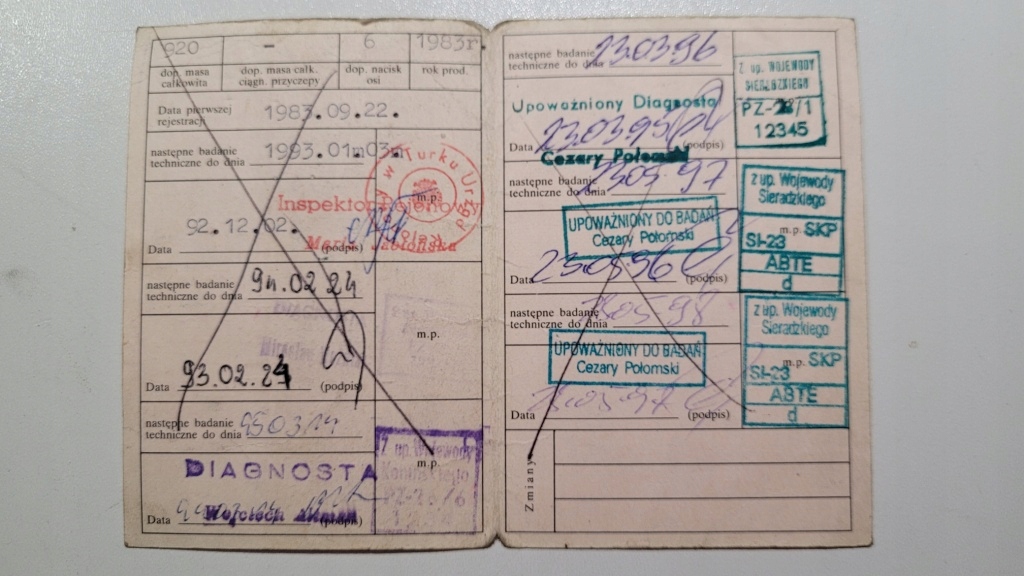 820 - 6 1983r
dop. masa całkowita dop. masa całk. ciągn. przyczepy dop. nacisk osi rok prod.
Data pierwszej rejestracji 1983.09.22.
następne badanie techniczne do dnia 1993.01m03
m.p.
Inspektor Rejonowy
92.12.02.
Data (podpis)
następne badanie
techniczne do dnia 94.02.24
m.p.
Data 93.02.24 (podpis)
następne badanie
techniczne do dnia 950314
Z up. Wojewody
Konińskiego
m.p.
DIAGNOSTA
Data Wojciech (podpis)
następne badanie
techniczne do dnia 23.03.96
Z up. WOJEWODY
SIERADZKIEGO
PZ-/1
12345
Upoważniony Diagnosta
Data 23.03.95 (podpis)
Cezary Połomski
następne badanie
techniczne do dnia 23.05.97
z up. Wojewody
Sieradzkiego
m.p. SKP
SI-23
ABTE
d
UPOWAŻNIONY DO BADAŃ
Cezary Połomski
Data 23.05.96 (podpis)
następne badanie
techniczne do dnia 23.05.98
z up. Wojewody
Sieradzkiego
m.p. SKP
SI-23
ABTE
d
UPOWAŻNIONY DO BADAŃ
Cezary Połomski
Data 23.05.97 (podpis)
Zmiany